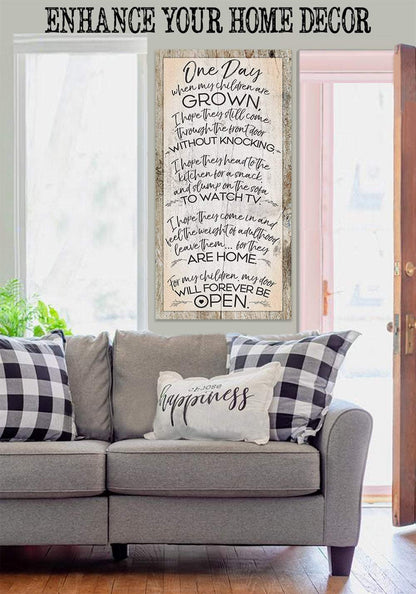 ENHANCE YOUR HOME DECOR
One Day
when my children are
GROWN,
I hope they still come
through the front door
WITHOUT KNOCKING
I hope they head to the
kitchen for a snack
and slump on the sofa
TO WATCH TV.
I hope they come in and
feel the weight of adulthood
leave them... for they
ARE HOME.
For my children, my door
WILL FOREVER BE
OPEN.
CHOOSE
happiness